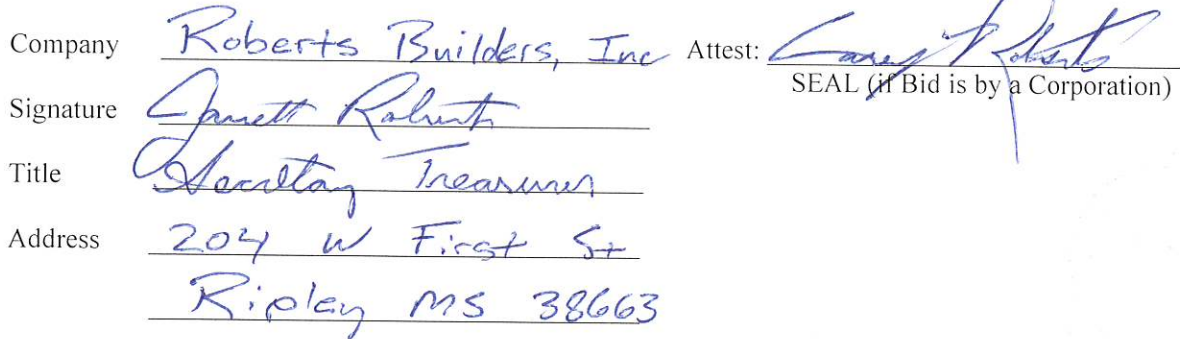 Company Roberts Builders, Inc Attest: Roberts
SEAL (if Bid is by a Corporation)
Signature Jarrett Roberts
Title Secretary Treasurer
Address 204 W First St
Ripley MS 38663